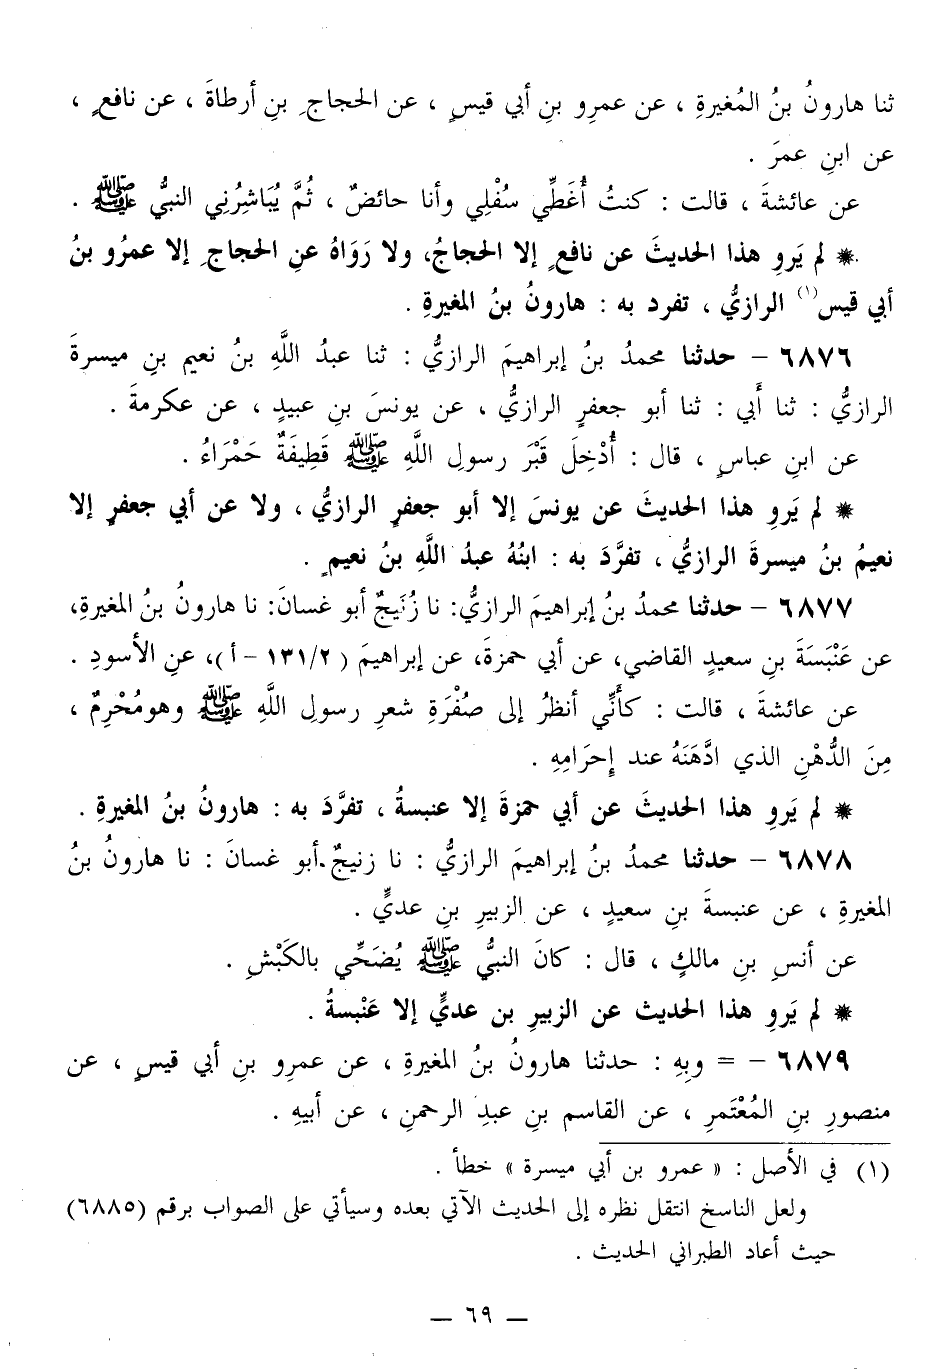 ثنا هارونُ بنُ المُغيرةِ ، عن عمرِو بنِ أبي قيسٍ ، عن الحجاجِ بنِ أرطاةَ ، عن نافعٍ ،
عن ابنِ عمرَ .
عن عائشةَ ، قالت : كنتُ أُغَطِّي سُفْلِي وأنا حائضٌ ، ثُمَّ يُبَاشِرُنِي النبيُّ ﷺ .
* لم يَروِ هذا الحديثَ عن نافعٍ إلا الحجاجُ، ولا رَوَاهُ عنِ الحجاجِ إلا عمرُو بنُ
أبي قيس(١) الرازيُّ ، تفرد به : هارونُ بنُ المغيرةِ .
٦٨٧٦ - حدثنا محمدُ بنُ إبراهيمَ الرازيُّ : ثنا عبدُ اللَّهِ بنُ نعيم بنِ ميسرةَ
الرازيُّ : ثنا أَبي : ثنا أبو جعفرٍ الرازيُّ ، عن يونسَ بنِ عبيدٍ ، عن عكرمةَ .
عن ابنِ عباسٍ ، قال : أُدْخِلَ قَبْرَ رسولِ اللَّهِ ﷺ قَطِيفَةٌ حَمْرَاءُ .
* لم يَروِ هذا الحديثَ عن يونسَ إلا أبو جعفرٍ الرازيُّ ، ولا عن أبي جعفرٍ إلا
نعيمُ بنُ ميسرةَ الرازيُّ ، تفرَّدَ به : ابنُهُ عبدُ اللَّهِ بنُ نعيمٍ .
٦٨٧٧ - حدثنا محمدُ بنُ إبراهيمَ الرازيُّ: نا زُنَيجٌ أبو غسانَ: نا هارونُ بنُ المغيرةِ،
عن عَنْبَسَةَ بنِ سعيدٍ القاضي، عن أبي حمزةَ، عن إبراهيمَ (١٣١/٢ - أ)، عنِ الأسودِ .
عن عائشةَ ، قالت : كأَنِّي أنظرُ إلى صُفْرَةِ شعرِ رسولِ اللَّهِ ﷺ وهو مُحْرِمٌ ،
مِنَ الدُّهْنِ الذي ادَّهَنَهُ عند إِحْرَامِهِ .
* لم يَروِ هذا الحديثَ عن أبي حمزةَ إلا عنبسةُ ، تفرَّدَ به : هارونُ بنُ المغيرةِ .
٦٨٧٨ - حدثنا محمدُ بنُ إبراهيمَ الرازيُّ : نا زنيجٌ أبو غسانَ : نا هارونُ بنُ
المغيرةِ ، عن عنبسةَ بنِ سعيدٍ ، عن الزبيرِ بنِ عديٍّ .
عن أنسِ بنِ مالكٍ ، قال : كانَ النبيُّ ﷺ يُضَحِّي بالكَبْشِ .
* لم يَروِ هذا الحديث عن الزبيرِ بن عديٍّ إلا عَنْبسةُ .
٦٨٧٩ - = وبِهِ : حدثنا هارونُ بنُ المغيرةِ ، عن عمرِو بنِ أبي قيسٍ ، عن
منصورِ بنِ المُعْتَمرِ ، عن القاسم بنِ عبدِ الرحمنِ ، عن أبيهِ .
(١) في الأصل : « عمرو بن أبي ميسرة » خطأ .
ولعل الناسخ انتقل نظره إلى الحديث الآتي بعده وسيأتي على الصواب برقم (٦٨٨٥)
حيث أعاد الطبراني الحديث .
— ٦٩ —